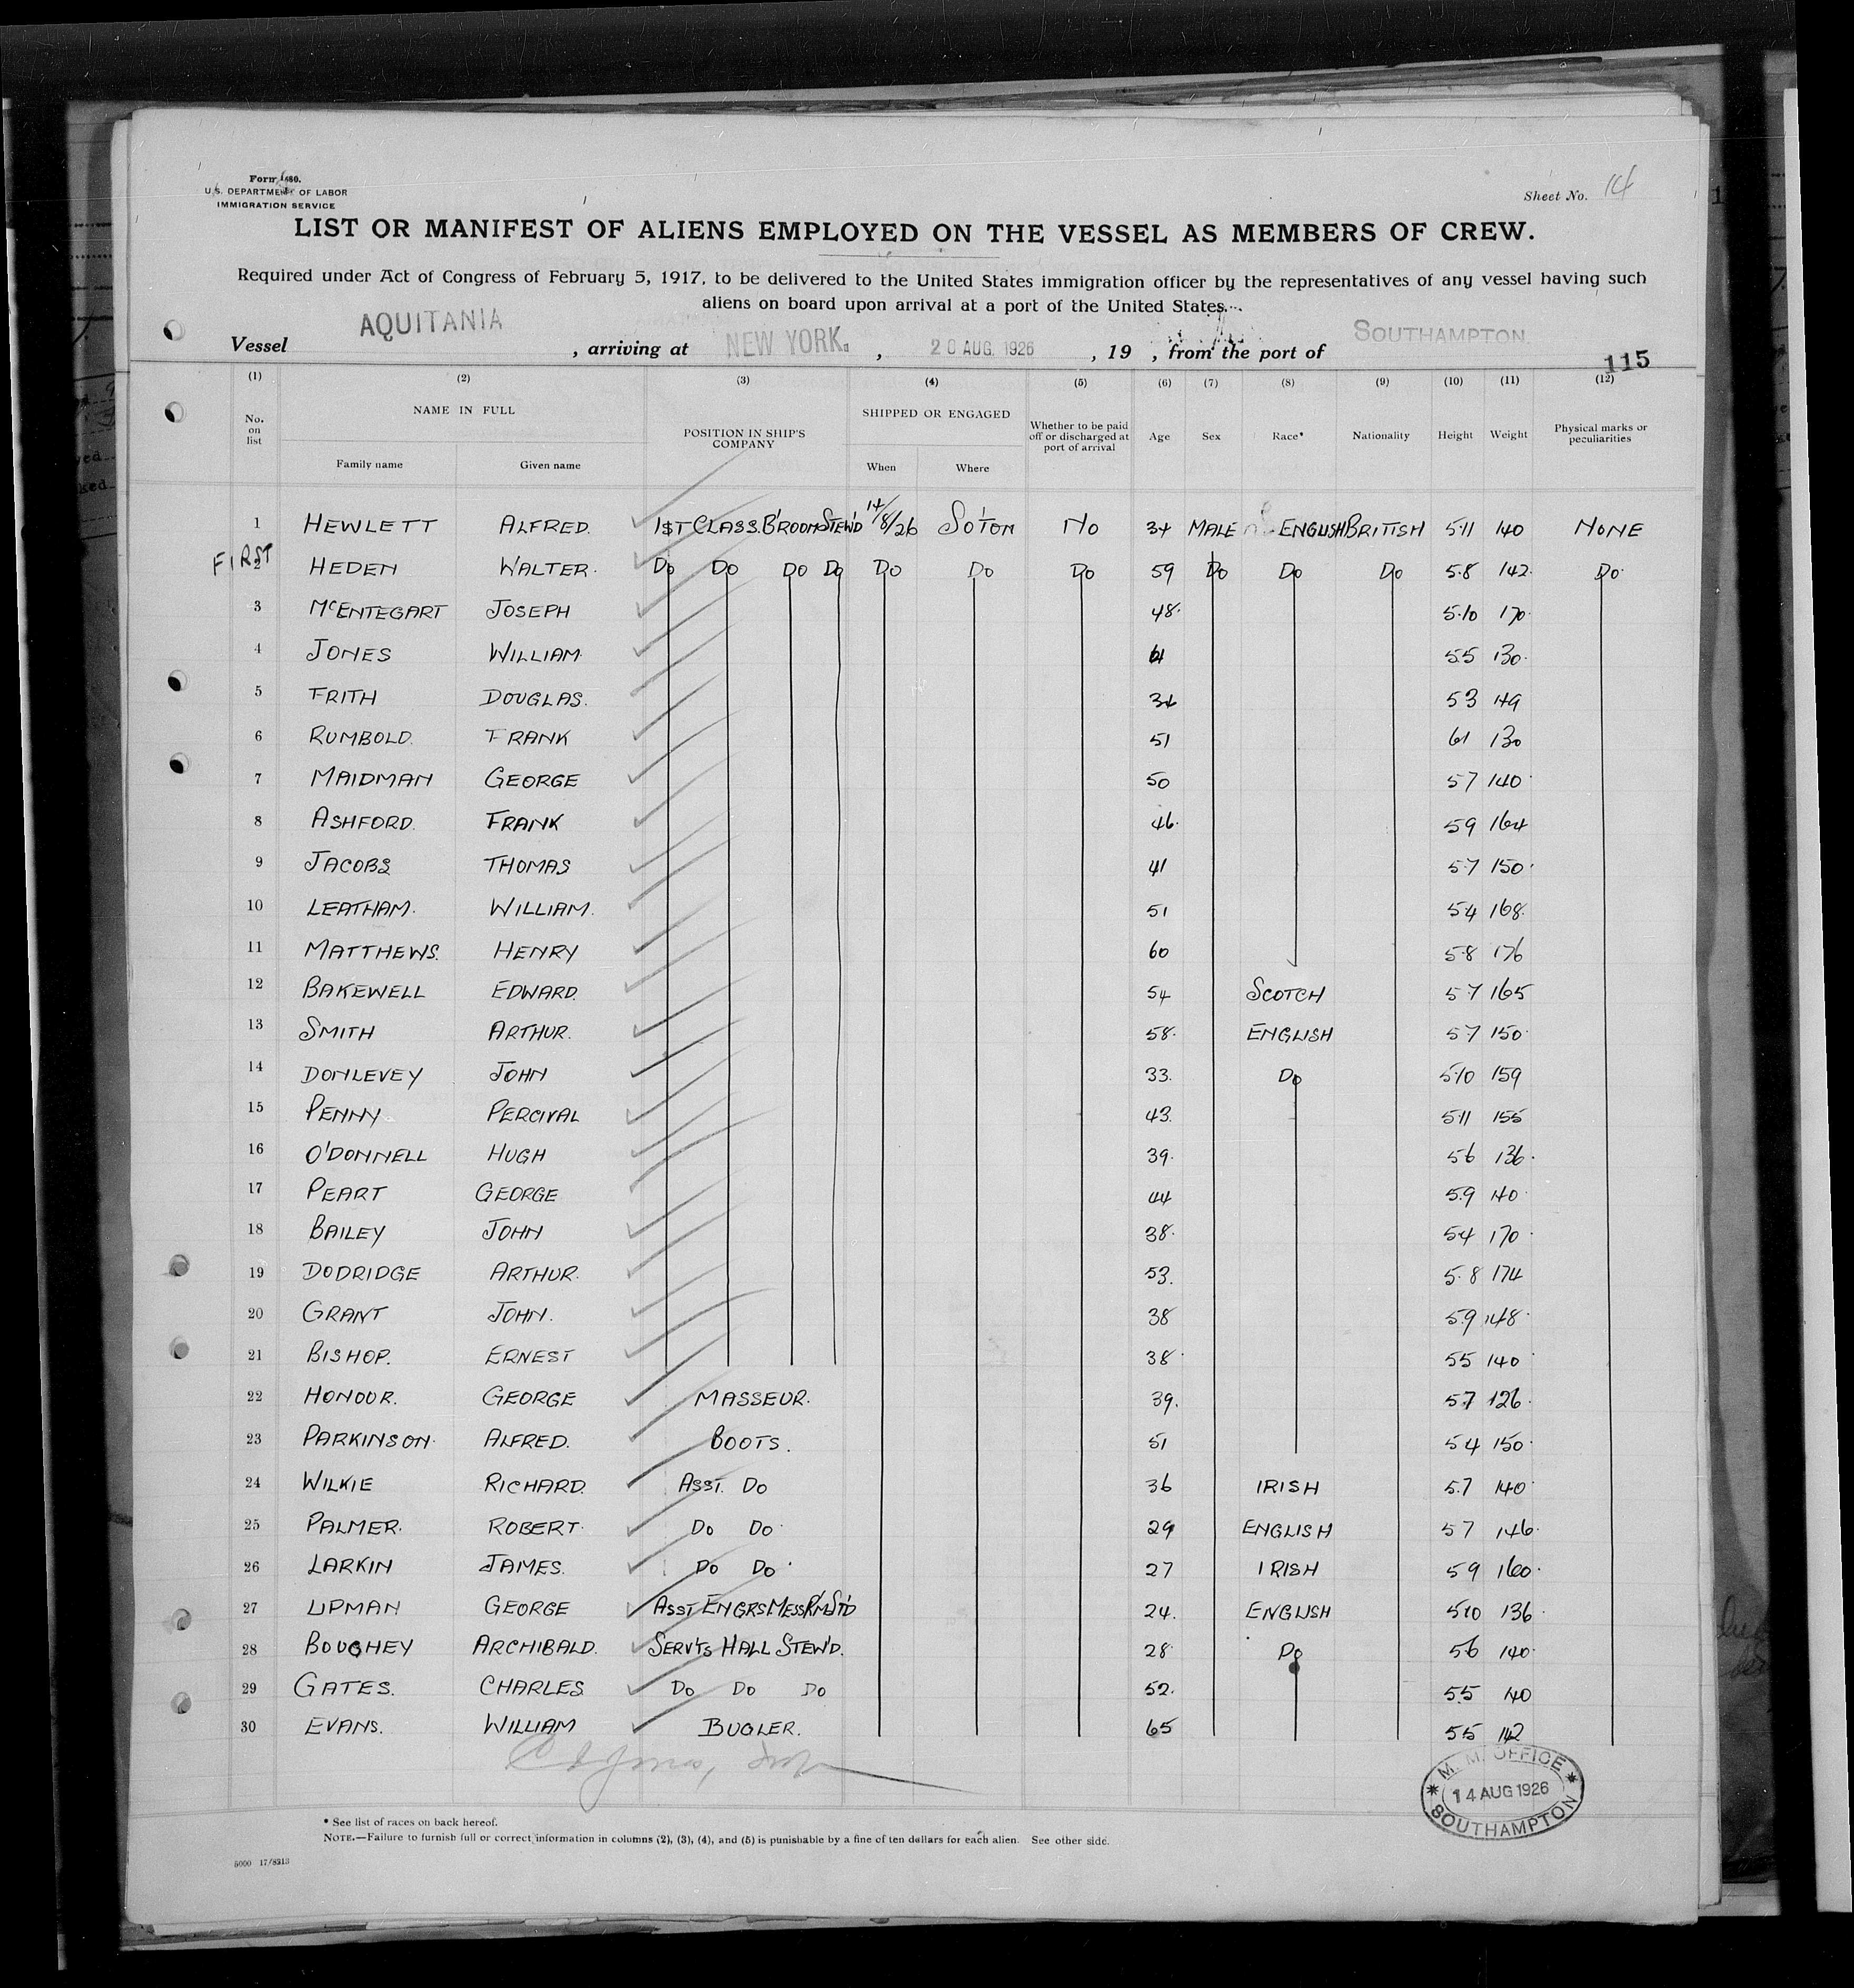 Form 680.
U.S. DEPARTMENT OF LABOR
IMMIGRATION SERVICE
Sheet No. 14
LIST OR MANIFEST OF ALIENS EMPLOYED ON THE VESSEL AS MEMBERS OF CREW.
Required under Act of Congress of February 5, 1917, to be delivered to the United States immigration officer by the representatives of any vessel having such
aliens on board upon arrival at a port of the United States.
Vessel AQUITANIA, arriving at NEW YORK, 20 AUG. 1926, 19 , from the port of SOUTHAMPTON.
115
(1) (2) (3) (4) (5) (6) (7) (8) (9) (10) (11) (12)
No. on list NAME IN FULL POSITION IN SHIP'S COMPANY SHIPPED OR ENGAGED Whether to be paid off or discharged at port of arrival Age Sex Race* Nationality Height Weight Physical marks or peculiarities
Family name Given name When Where
1 HEWLETT ALFRED. 1ST CLASS. B'ROOM STEW'D 14/8/26 SO'TON NO 34 MALE ENGLISH BRITISH 5 11 140 NONE
FIRST
2 HEDEN WALTER. DO DO DO DO DO DO DO 59 DO DO DO 5.8 142. DO.
3 McENTEGART JOSEPH 48. 5.10 170.
4 JONES WILLIAM. 55 130.
5 FRITH DOUGLAS. 34 53 149
6 RUMBOLD. FRANK 51 61 130
7 MAIDMAN GEORGE 50 57 140
8 ASHFORD. FRANK 46. 59 164
9 JACOBS THOMAS 41 57 150.
10 LEATHAM. WILLIAM. 51 54 168.
11 MATTHEWS. HENRY 60 58 176
12 BAKEWELL EDWARD. 54 SCOTCH 57 165
13 SMITH ARTHUR. 58. ENGLISH 57 150
14 DONLEVEY JOHN 33. DO 510 159
15 PENNY PERCIVAL 43. 511 155
16 O'DONNELL HUGH 39. 56 136.
17 PEART GEORGE 44 5.9 140.
18 BAILEY JOHN 38. 54 170.
19 DODRIDGE ARTHUR. 53. 5.8 174
20 GRANT JOHN. 38 5.9 148.
21 BISHOP. ERNEST 38 55 140
22 HONOUR. GEORGE MASSEUR. 39. 57 126.
23 PARKINSON. ALFRED. BOOTS. 51 54 150.
24 WILKIE RICHARD. ASST. DO 36 IRISH 5.7 140
25 PALMER. ROBERT. DO DO 29 ENGLISH 57 146.
26 LARKIN JAMES. DO DO. 27 IRISH 59 160.
27 LIPMAN GEORGE ASST ENGRS. MESS R'M ST'D 24. ENGLISH 510 136.
28 BOUGHEY ARCHIBALD. SERV'TS HALL STEW'D. 28 DO 56 140.
29 GATES. CHARLES DO DO DO 52. 5.5 140
30 EVANS. WILLIAM BUGLER. 65 55 142
M. M. OFFICE
14 AUG 1926
SOUTHAMPTON
* See list of races on back hereof.
NOTE.—Failure to furnish full or correct information in columns (2), (3), (4), and (5) is punishable by a fine of ten dollars for each alien. See other side.
5000 17/8213